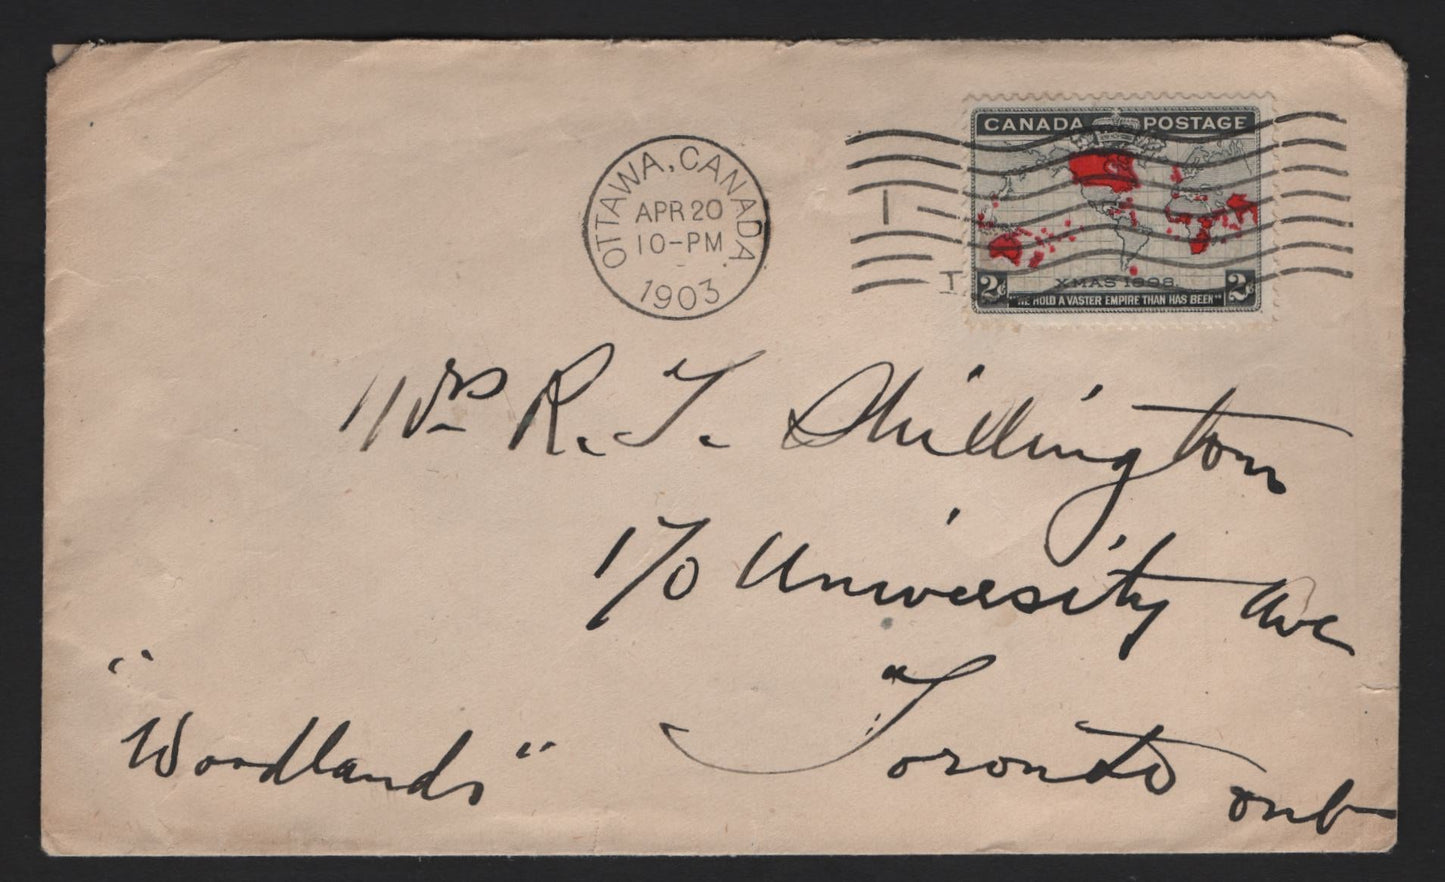 CANADA POSTAGE
XMAS 1898
2c 2c
"WE HOLD A VASTER EMPIRE THAN HAS BEEN"
OTTAWA, CANADA.
APR 20
10-PM
1903
1
Mrs R. T. Shillington
170 University Ave
Toronto
Ont
"Woodlands"